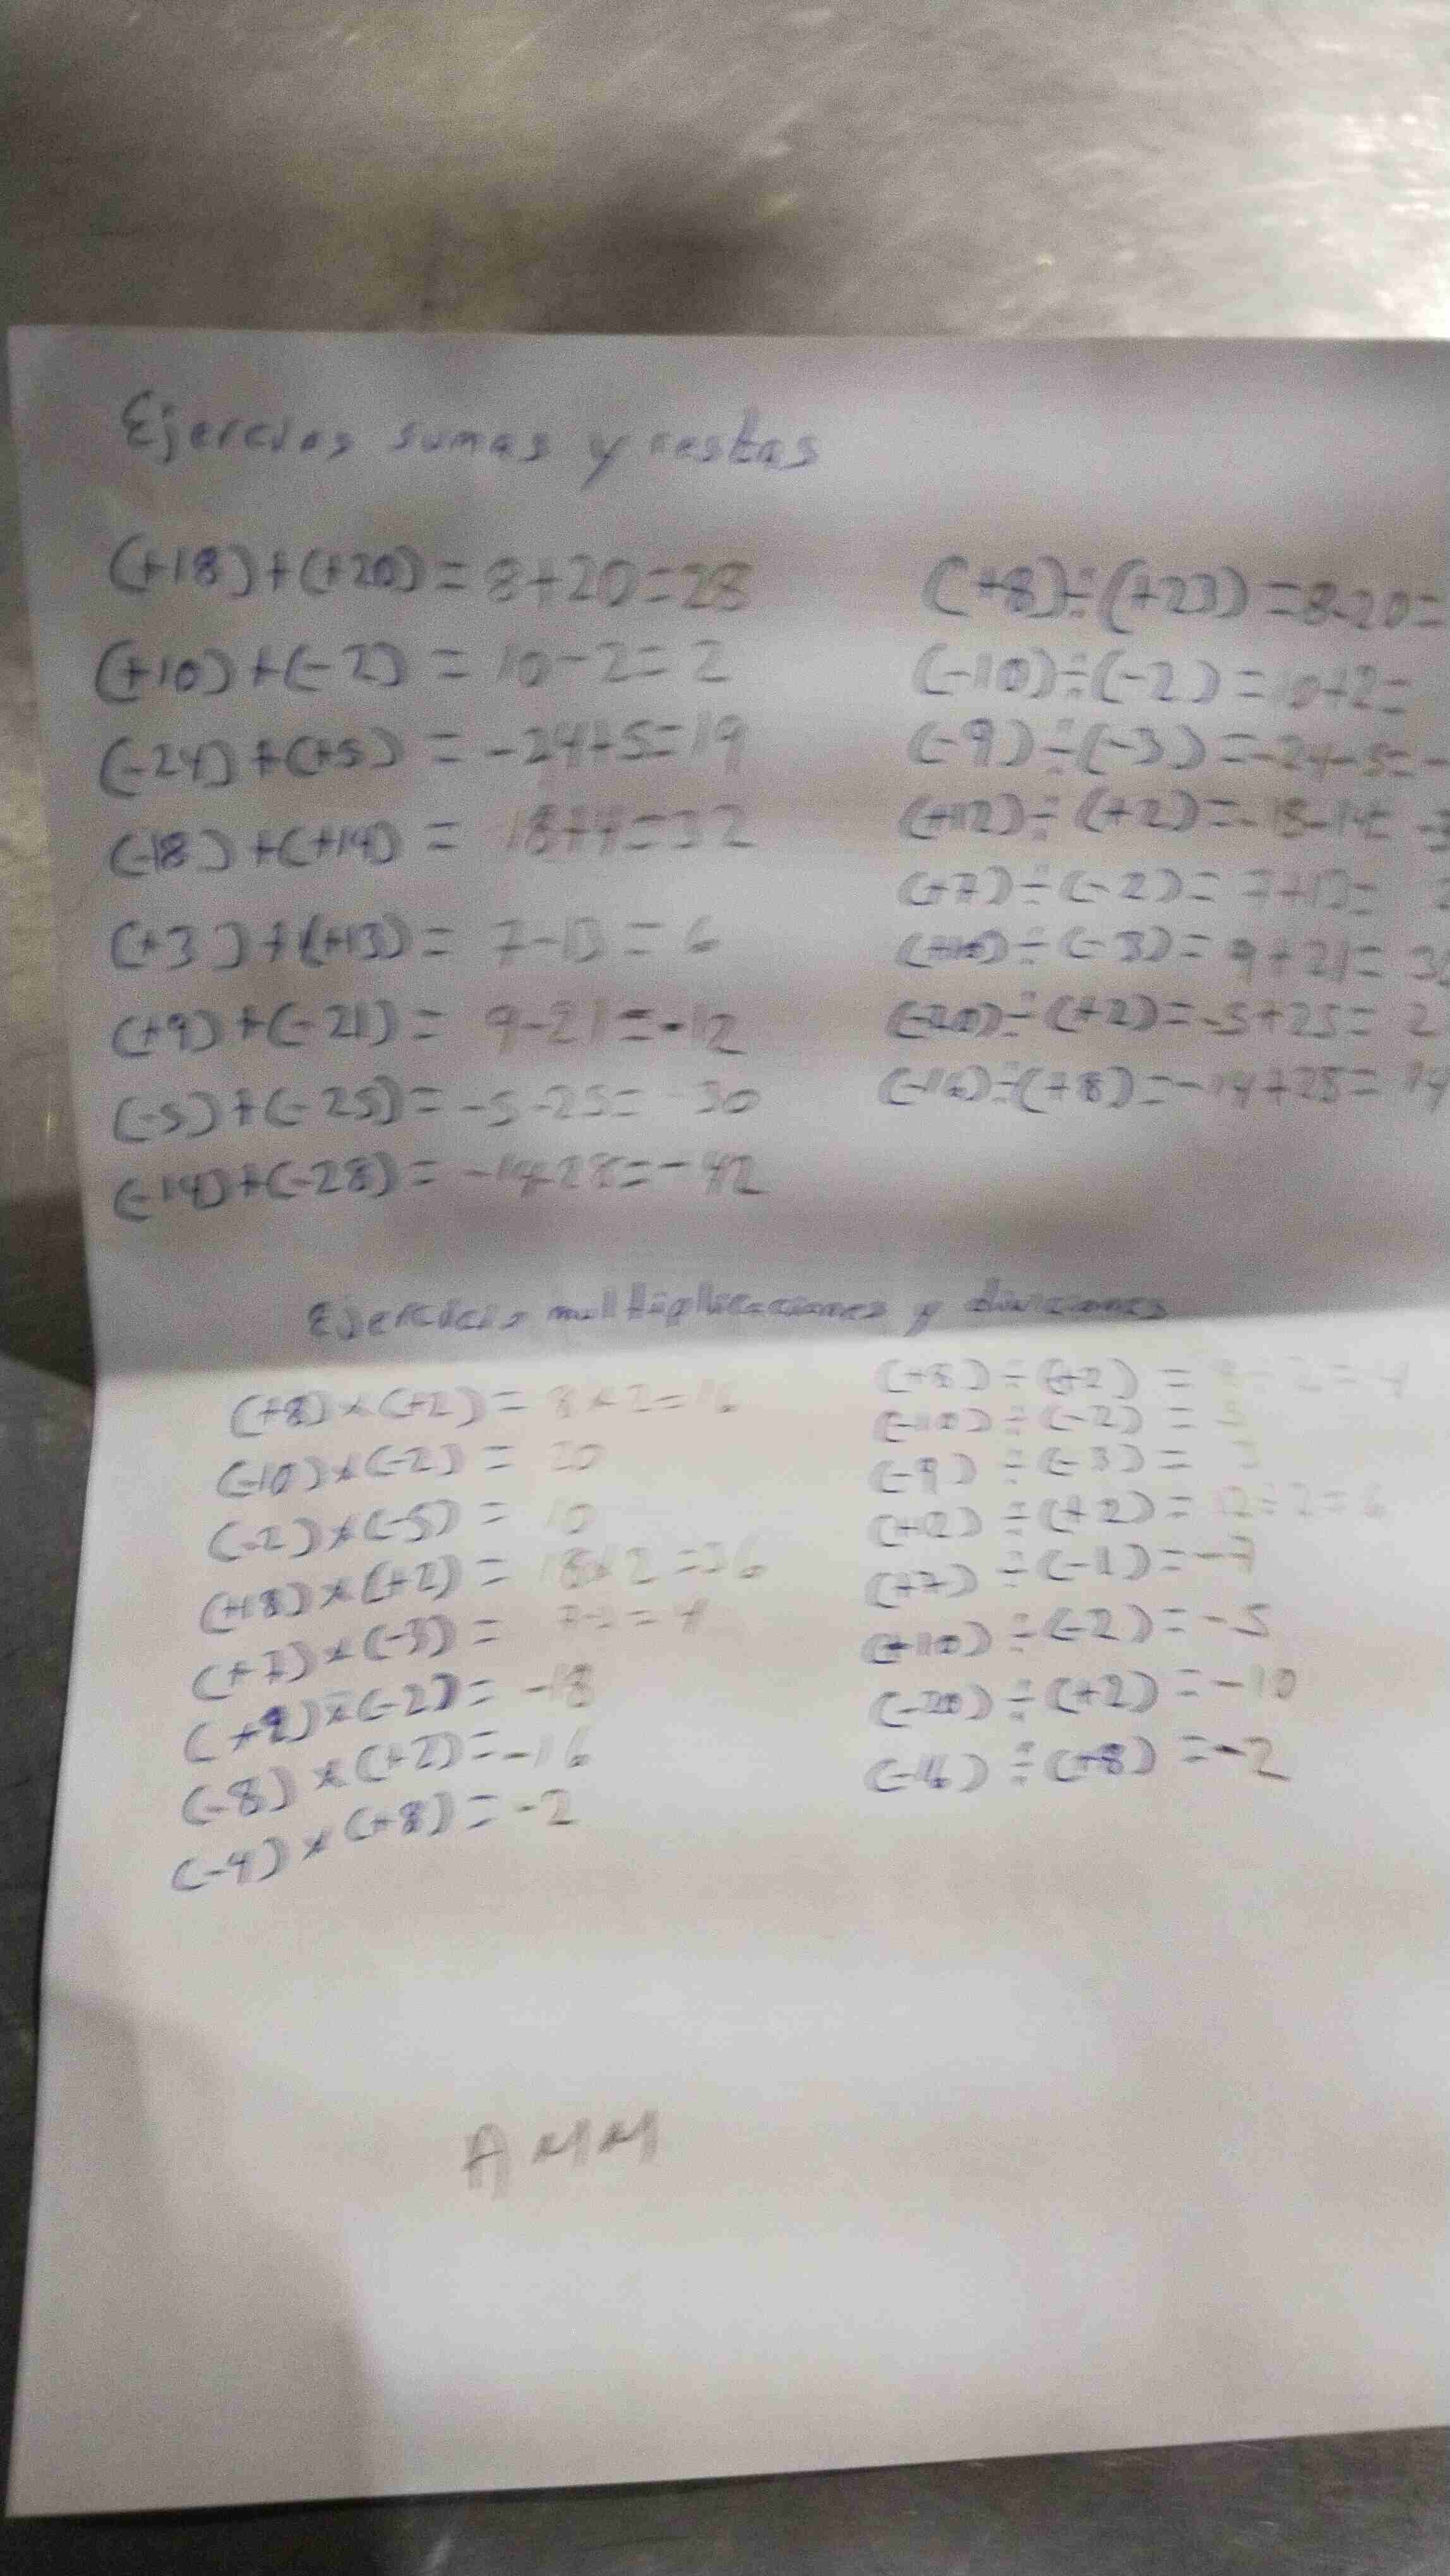 Ejercios sumas y restas
(+18)+(+20)=8+20=28
(+10)+(-2) = 10-2=2
(-24)+(+5) = -24+5=19
(-18)+(+14) = 18+4=32
(+3)+(+13)= 7-13=6
(+9)+(-21)= 9-21=-12
(-5)+(-25)=-5-25=-30
(-14)+(-28)=-14-28=-42
(+8)÷(+23)=8-20=
(-10)÷(-2)=10+2=
(-9)÷(-3)=-24-5=-
(+12)÷(+2)=-18-14=
(+7)÷(-2)=7+13=
(+10)÷(-3)=9+21=
(-20)÷(+2)=-5+25=2
(-16)÷(+8)=-14+28=14
Ejercicio multiplicaciones y divisiones
(+8)×(+2)=8×2=16
(-10)×(-2)= 20
(-2)×(-5)= 10
(+18)×(+2)= 18×2=36
(+7)×(-3)=
(+9)×(-2)= -18
(-8)×(+2)=-16
(-4)×(+8)=-2
(+8)÷(+2) = 8÷2=4
(-10)÷(-2) = 5
(-9)÷(-3)= 3
(+12)÷(+2)= 12÷2=6
(+7)÷(-1)=-7
(+10)÷(-2)=-5
(-20)÷(+2)=-10
(-16)÷(+8)=-2